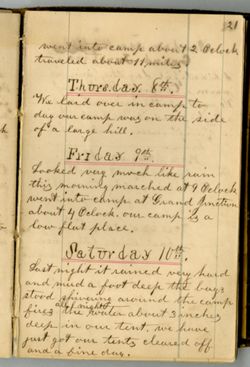 21
went into camp about 2 Oclock
traveled about 11 miles
Thursday 8th.
We laid over in camp to
day our camp was on the side
of a large hill.
Friday 9th.
Looked very much like rain
this morning marched at 9 Oclock
went into camp at Grand Junction
about 4 Oclock, our camp is a
low flat place.
Saturday 10th.
Last night it rained very hard
and mud a foot deep the boys
stood shivering around the camp
fires all night the water about 3 inches
deep in our tent, we have
just got our tents cleared off
and a fine day.